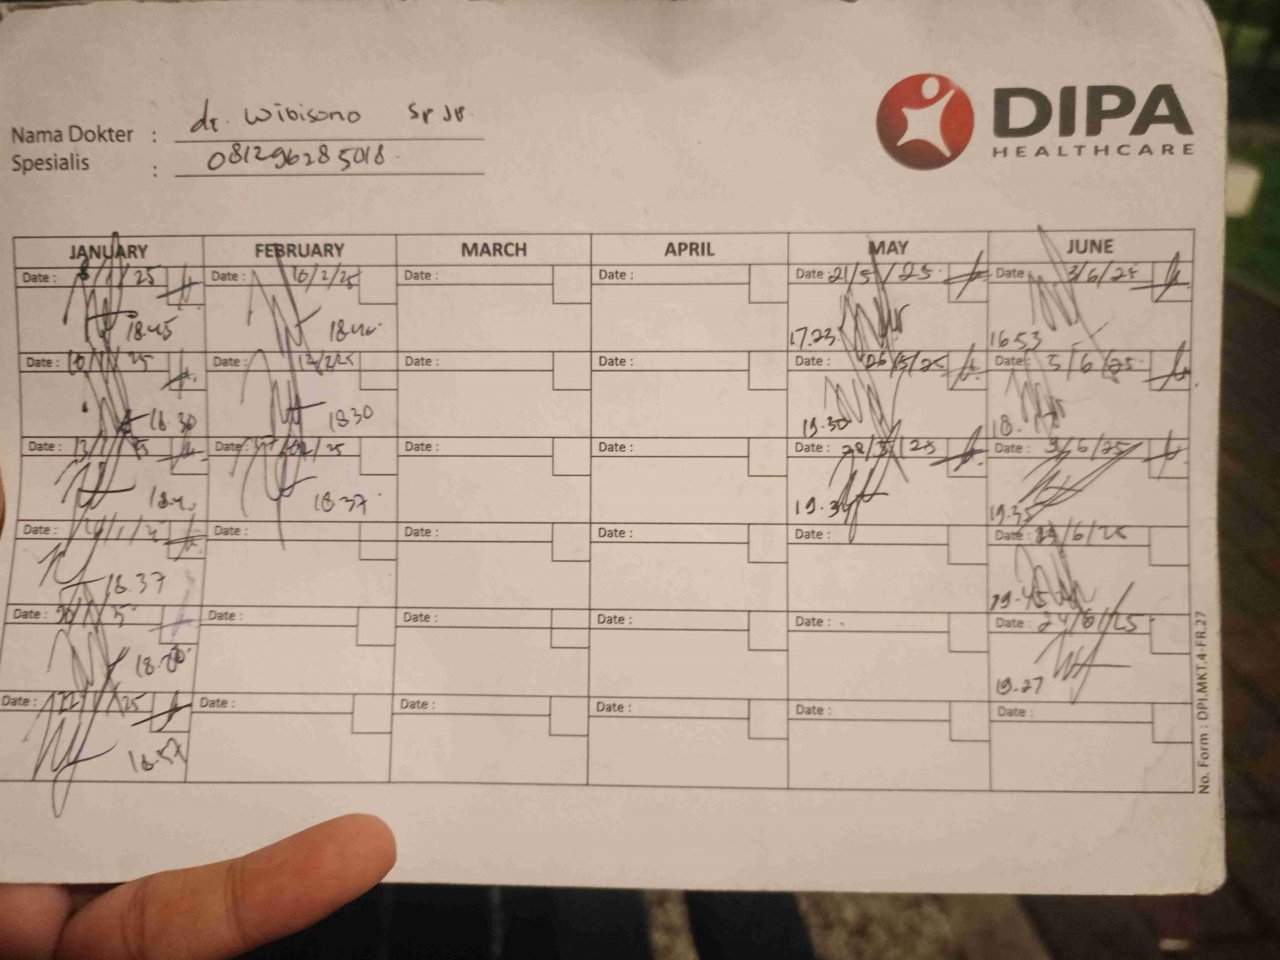 DIPA
HEALTHCARE
Nama Dokter : dr. Wibisono Sp JP
Spesialis : 081296285018
JANUARY FEBRUARY MARCH APRIL MAY JUNE
Date : /1/25 Date : 10/2/25 Date : Date : Date : 21/5/25 Date : 3/6/25
18.45 18.40 17.23 16.53
Date : 10/ 25 Date : 12/2/25 Date : Date : Date : 26/5/25 Date : 5/6/25
18.30 18.30 19.30 18.
Date : 13/ Date : /25 Date : Date : Date : 28/5/25 Date : 3/6/25
18.37 19.3 19.35
Date : Date : Date : Date : Date : Date : /6/25
18.37 19.45
Date : Date : Date : Date : Date : Date : 24/6/25
18. 19.27
Date : /25 Date : Date : Date : Date : Date :
18.57
No. Form : DPI.MKT.4-FR.27